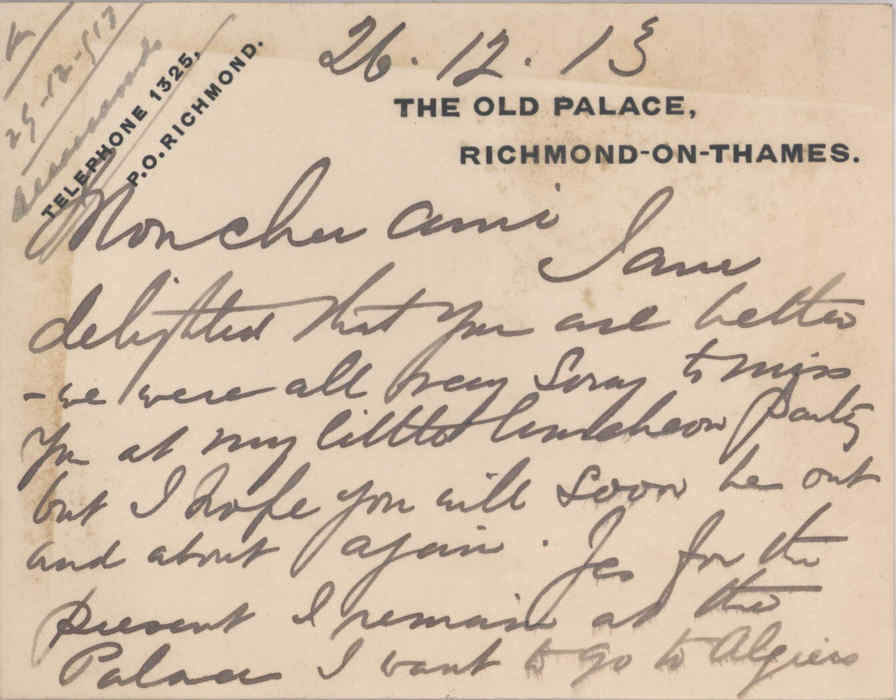 26.12.13
TELEPHONE 1325,
P.O. RICHMOND.
THE OLD PALACE,
RICHMOND-ON-THAMES.
Mon cher ami
I am
delighted that you are better
- we were all very sorry to miss
you at my little luncheon party
but I hope you will soon be out
and about again. Yes for the
present I remain at the
Palace I want to go to Algiers